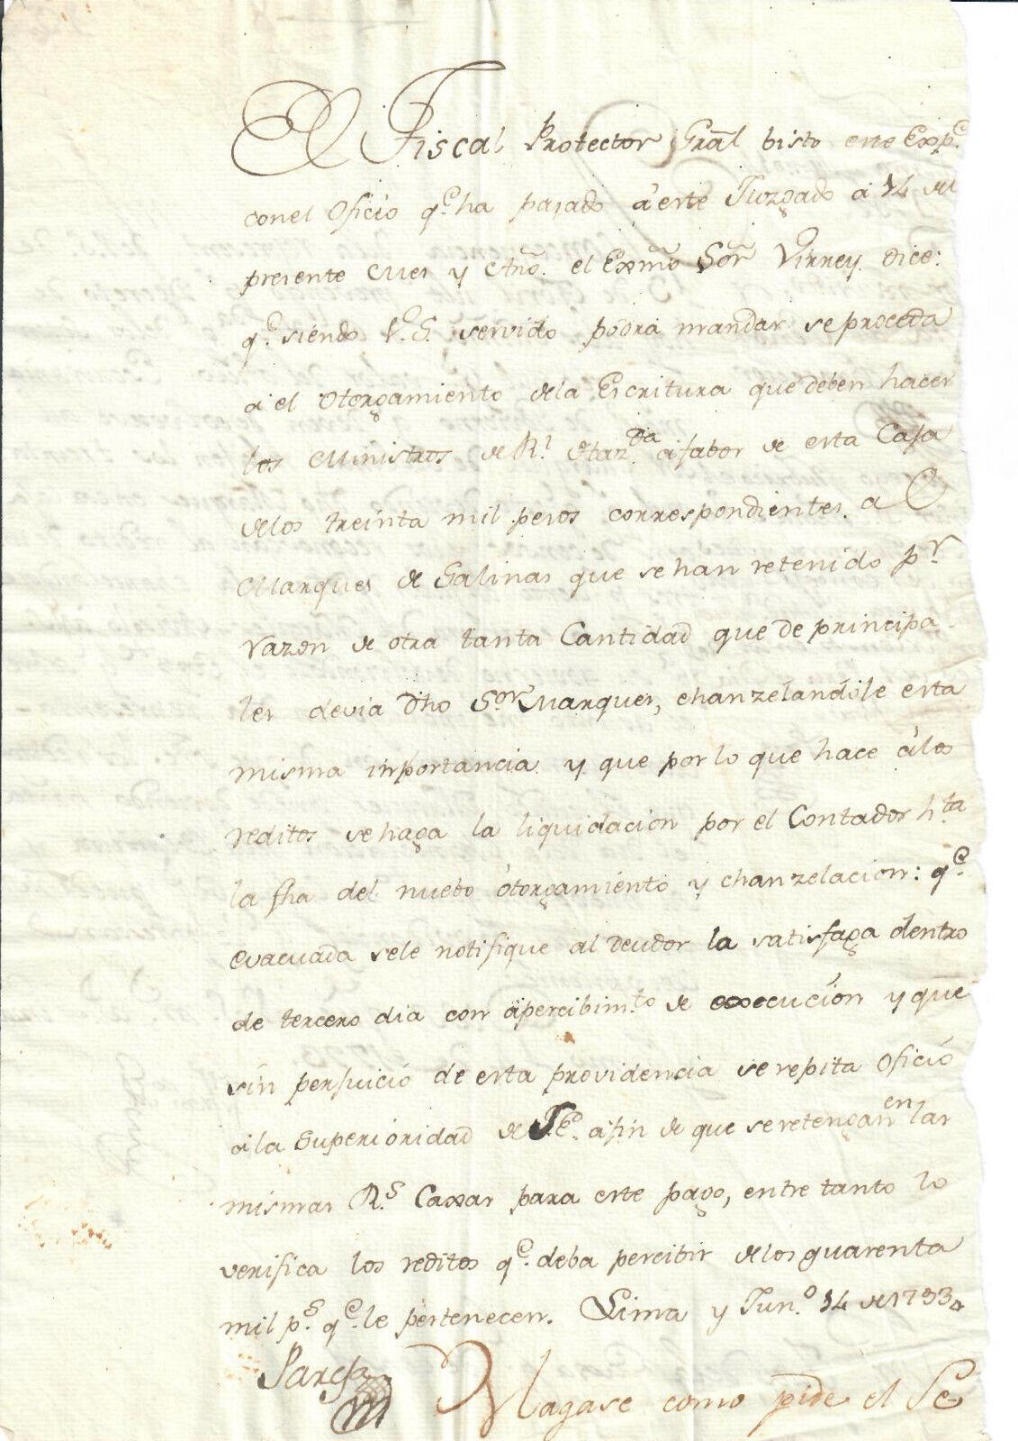 El Fiscal Protector Gral bisto este Expte
con el Oficio qe ha pasado á este Juzgado á 14 del
presente Mes y Año. el Exmo Sor Virrey. dice:
qe siendo V.S. servido podrá mandar se proceda
á el Otorgamiento de la Escritura que deben hacer
los Ministros de Rl Hazda á fabor de esta Casa
de los treinta mil pesos correspondientes. a el
Marques de Salinas que se han retenido pr
razon de otra tanta Cantidad que de principa
les devia dho Sor Marques, chanzelandole esta
misma inportancia y que por lo que hace á los
reditos se haga la liquidacion por el Contador hta
la fha del nuebo ótorgamiento y chanzelacion: qe
evacuada sele notifique al deudor la satisfaga dentro
de tercero dia con apercibimto de execución y que
sin perjuicio de esta providencia se repita Oficio
á la Superioridad de S.E. afin de que se retengan en las
mismas Rs Caxas para este pago, entre tanto lo
verifica los reditos qe deba percibir de los quarenta
mil ps qe le pertenecen. Lima y Jun.o 14 de 1793.
Hagase como pide el Se